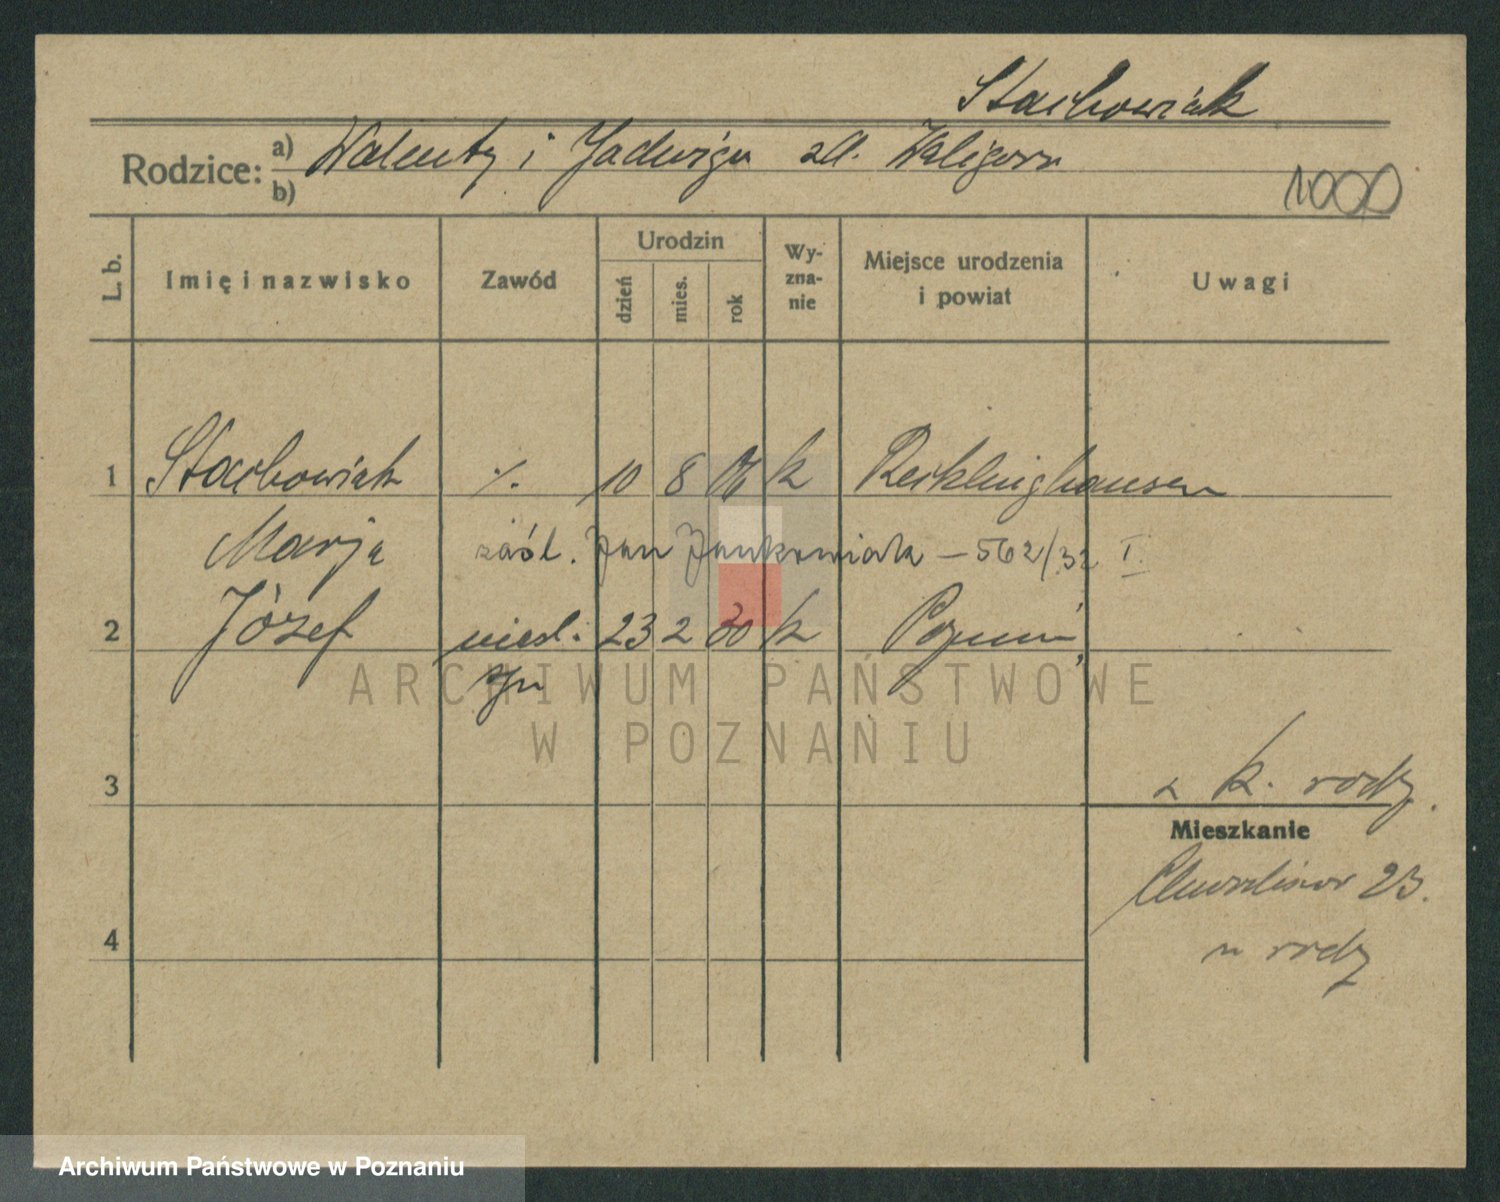 Stachowiak
Rodzice: a) Walenty i Jadwiga zd. Waligóra
b)
1000
L. b.
Imię i nazwisko
Zawód
Urodzin
dzień
mies.
rok
Wy-
zna-
nie
Miejsce urodzenia
i powiat
Uwagi
1 Stachowiak ./. 10 8 06 k Recklinghausen
Marja zaśl. Jan Jankowiak – 562/32 I.
2 Józef nieśl. 23 2 30 k Poznań
syn
ARCHIWUM PAŃSTWOWE
W POZNANIU
3 z k. rodz.
Mieszkanie
23.
4 u rodz
Archiwum Państwowe w Poznaniu